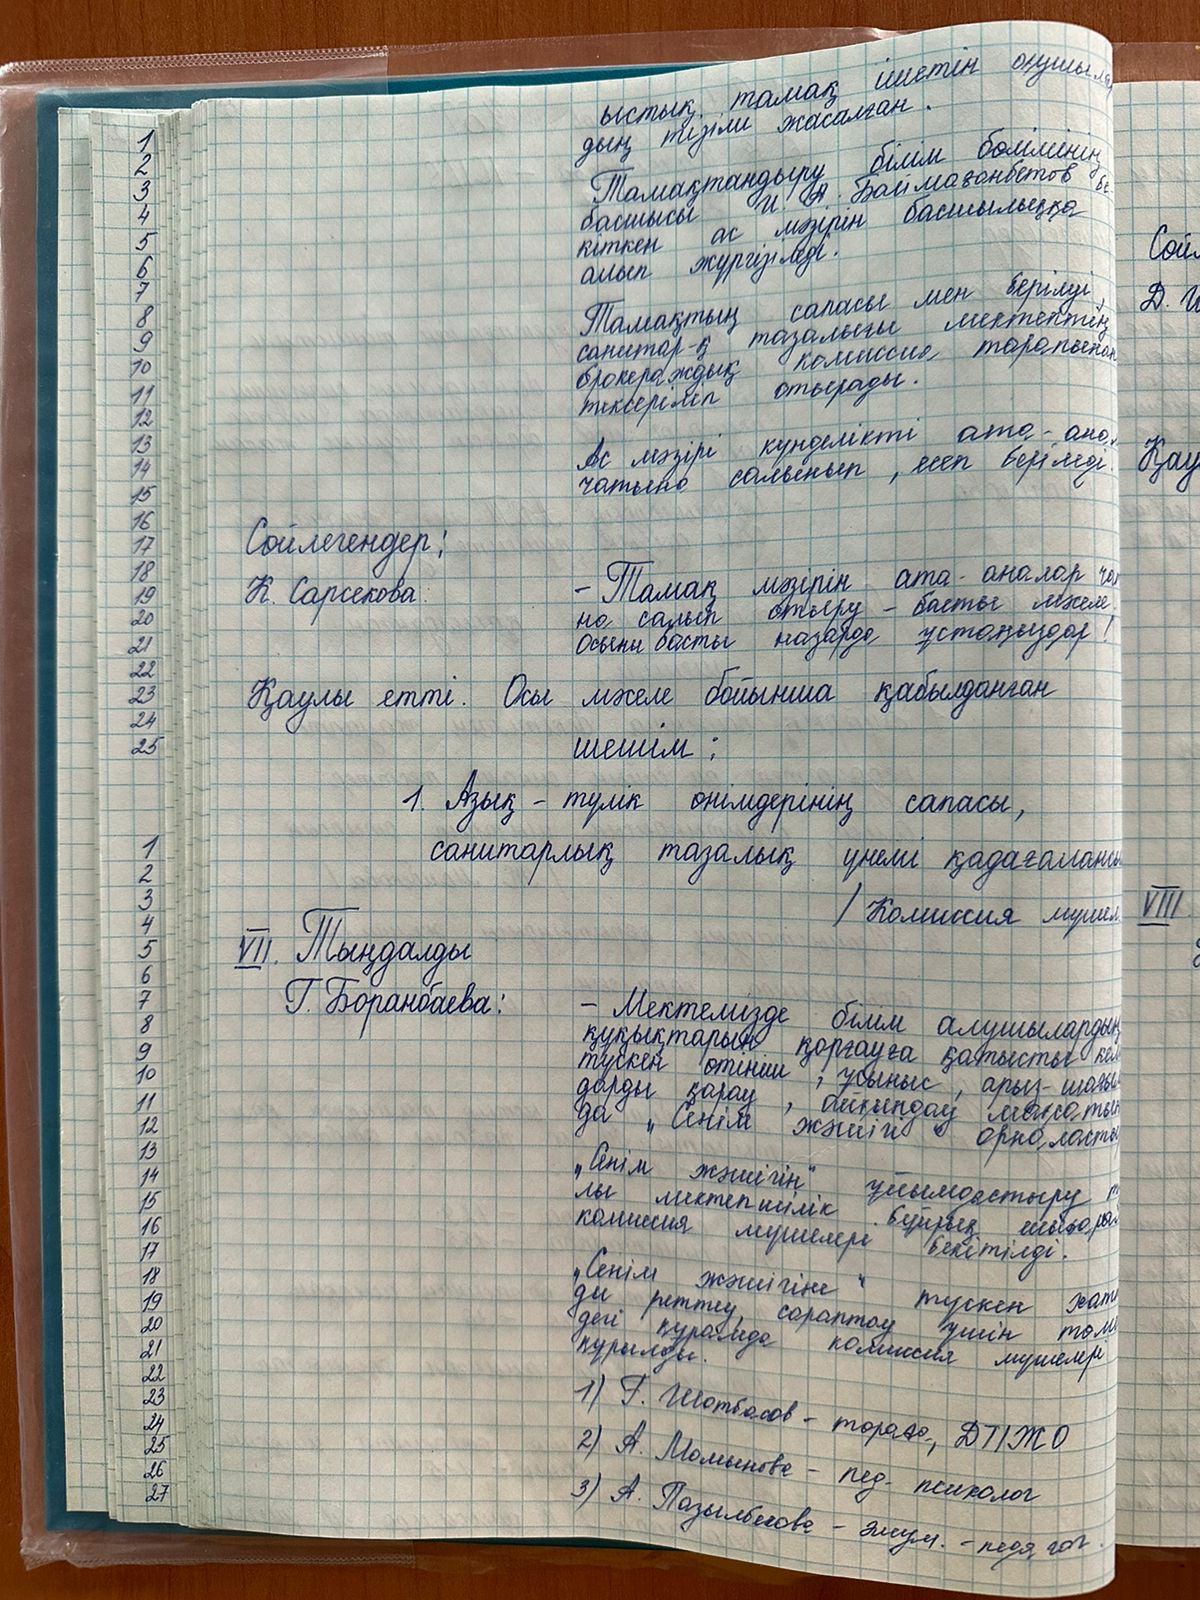 ыстық тамақ ішетін оқушыла
дың тізімі жасалған.
Тамақтандыру білім бөлімінің
басшысы И. А. Баймағанбетов бе
кіткен ас мәзірін басшылыққа
алып жүргізіледі.
Тамақтың сапасы мен берілуі,
санитар-қ тазалығы мектептің
бракераждық комиссия тарапынан
тексеріліп отырады.
Ас мәзірі күнделікті ата-ана
чатына салынып, есеп беріледі.
Сөйлегендер:
К. Сарсекова.
- Тамақ мәзірін ата-аналар ча
на салып отыру - басты мәселе
Осыны басты назарда ұстаңыздар!
Қаулы етті. Осы мәселе бойынша қабылданған
шешім:
1. Азық-түлік өнімдерінің сапасы,
санитарлық тазалық үнемі қадағалансы
/ Комиссия мүшел
VII. Тыңдалды
Г. Боранбаева:
- Мектемізде білім алушылардың
құқықтарын қорғауға қатысты кел
түскен өтініш, ұсыныс, арыз-шағым
дарды қарау, анықтау мақсатын
да „Сенім жәшігі" орналасты
„Сенім жәшігін" ұйымдастыру т
лы мектепішілік бұйрық шығарыл
комиссия мүшелері бекітілді.
„Сенім жәшігіне" түскен хатт
ды реттеу, сараптау үшін төме
дегі құрамда комиссия мүшелері
құрылды.
1) Г. Шотбасов - төраға, ДТІЖО
2) А. Момынова - пед. психолог
3) А. Пазылбекова - әлеум. - педагог.
1
2
3
4
5
6
7
8
9
10
11
12
13
14
15
16
17
18
19
20
21
22
23
24
25
1
2
3
4
5
6
7
8
9
10
11
12
13
14
15
16
17
18
19
20
21
22
23
24
25
26
27
Сөйл
Қау
VIII